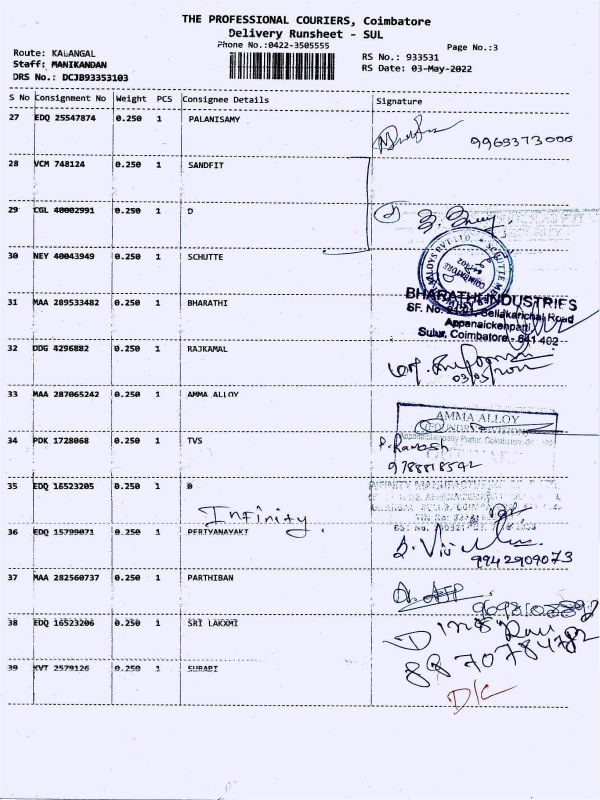 THE PROFESSIONAL COURIERS, Coimbatore
Delivery Runsheet - SUL
Phone No.:0422-3505555
Page No.:3
Route: KALANGAL
Staff: MANIKANDAN
DRS No.: DCJB93353103
RS No.: 933531
RS Date: 03-May-2022
S No Consignment No Weight PCS Consignee Details Signature
27 EDQ 25547874 0.250 1 PALANISAMY
28 VCM 748124 0.250 1 SANDFIT
29 CGL 40002991 0.250 1 D
30 NEY 40043949 0.250 1 SCHUTTE
BHARATHI INDUSTRIES
31 MAA 289533482 0.250 1 BHARATHI
Appanaickenpatti
Sulur, Coimbatore - 641 402
32 DDG 4296882 0.250 1 RAJKAMAL
33 MAA 287065242 0.250 1 AMMA ALLOY
AMMA ALLOY
34 PDK 1728068 0.250 1 TVS
P. Ramesh
9788818542
35 EDQ 16523205 0.250 1 D
Infinity
36 EDQ 15799071 0.250 1 PERIYANAYAKI
9942909073
37 MAA 282560737 0.250 1 PARTHIBAN
38 EDQ 16523206 0.250 1 SRI LAKXMI
8870784782
39 KVT 2579126 0.250 1 SURABI
D/C